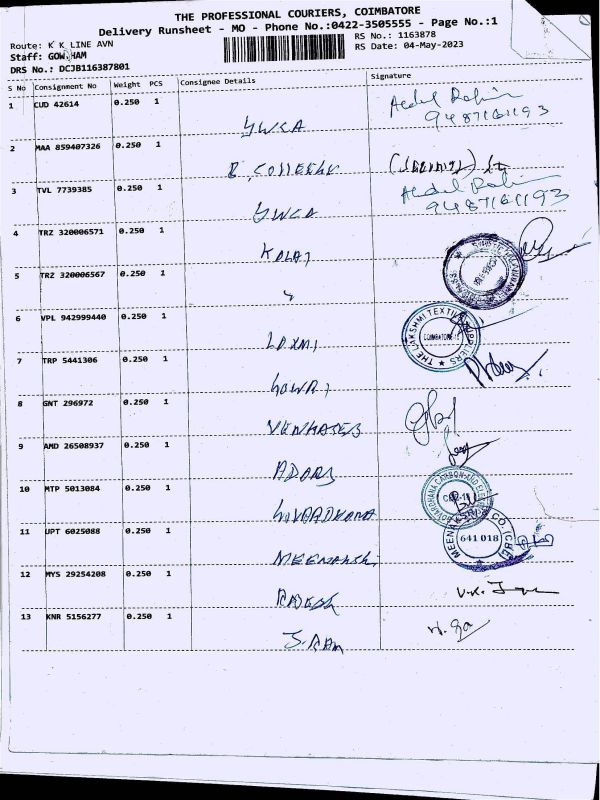 THE PROFESSIONAL COURIERS, COIMBATORE
Delivery Runsheet - MO - Phone No.:0422-3505555 - Page No.:1
Route: K K LINE AVN
RS No.: 1163878
Staff: GOW HAM
RS Date: 04-May-2023
DRS No.: DCJB116387801
S No Consignment No Weight PCS Consignee Details Signature
1 CUD 42614 0.250 1
YWCA Abdul Rahim
9487161193
2 MAA 859407326 0.250 1
3 TVL 7739385 0.250 1
YWCA Abdul Rahim
9487161193
4 TRZ 320006571 0.250 1
5 TRZ 320006567 0.250 1
6 VPL 942999440 0.250 1
THE LAKSHMI TEXTILE SUPPLIERS
LAXMI
7 TRP 5441306 0.250 1
GOWRI
8 GNT 296972 0.250 1
VENKATES
9 AMD 26508937 0.250 1
ADORS
10 MTP 5013084 0.250 1
GOVARDHANA
11 UPT 6025088 0.250 1
641 018
MEENAKSHI
12 MYS 29254208 0.250 1
RAJESH
13 KNR 5156277 0.250 1
S. RAM